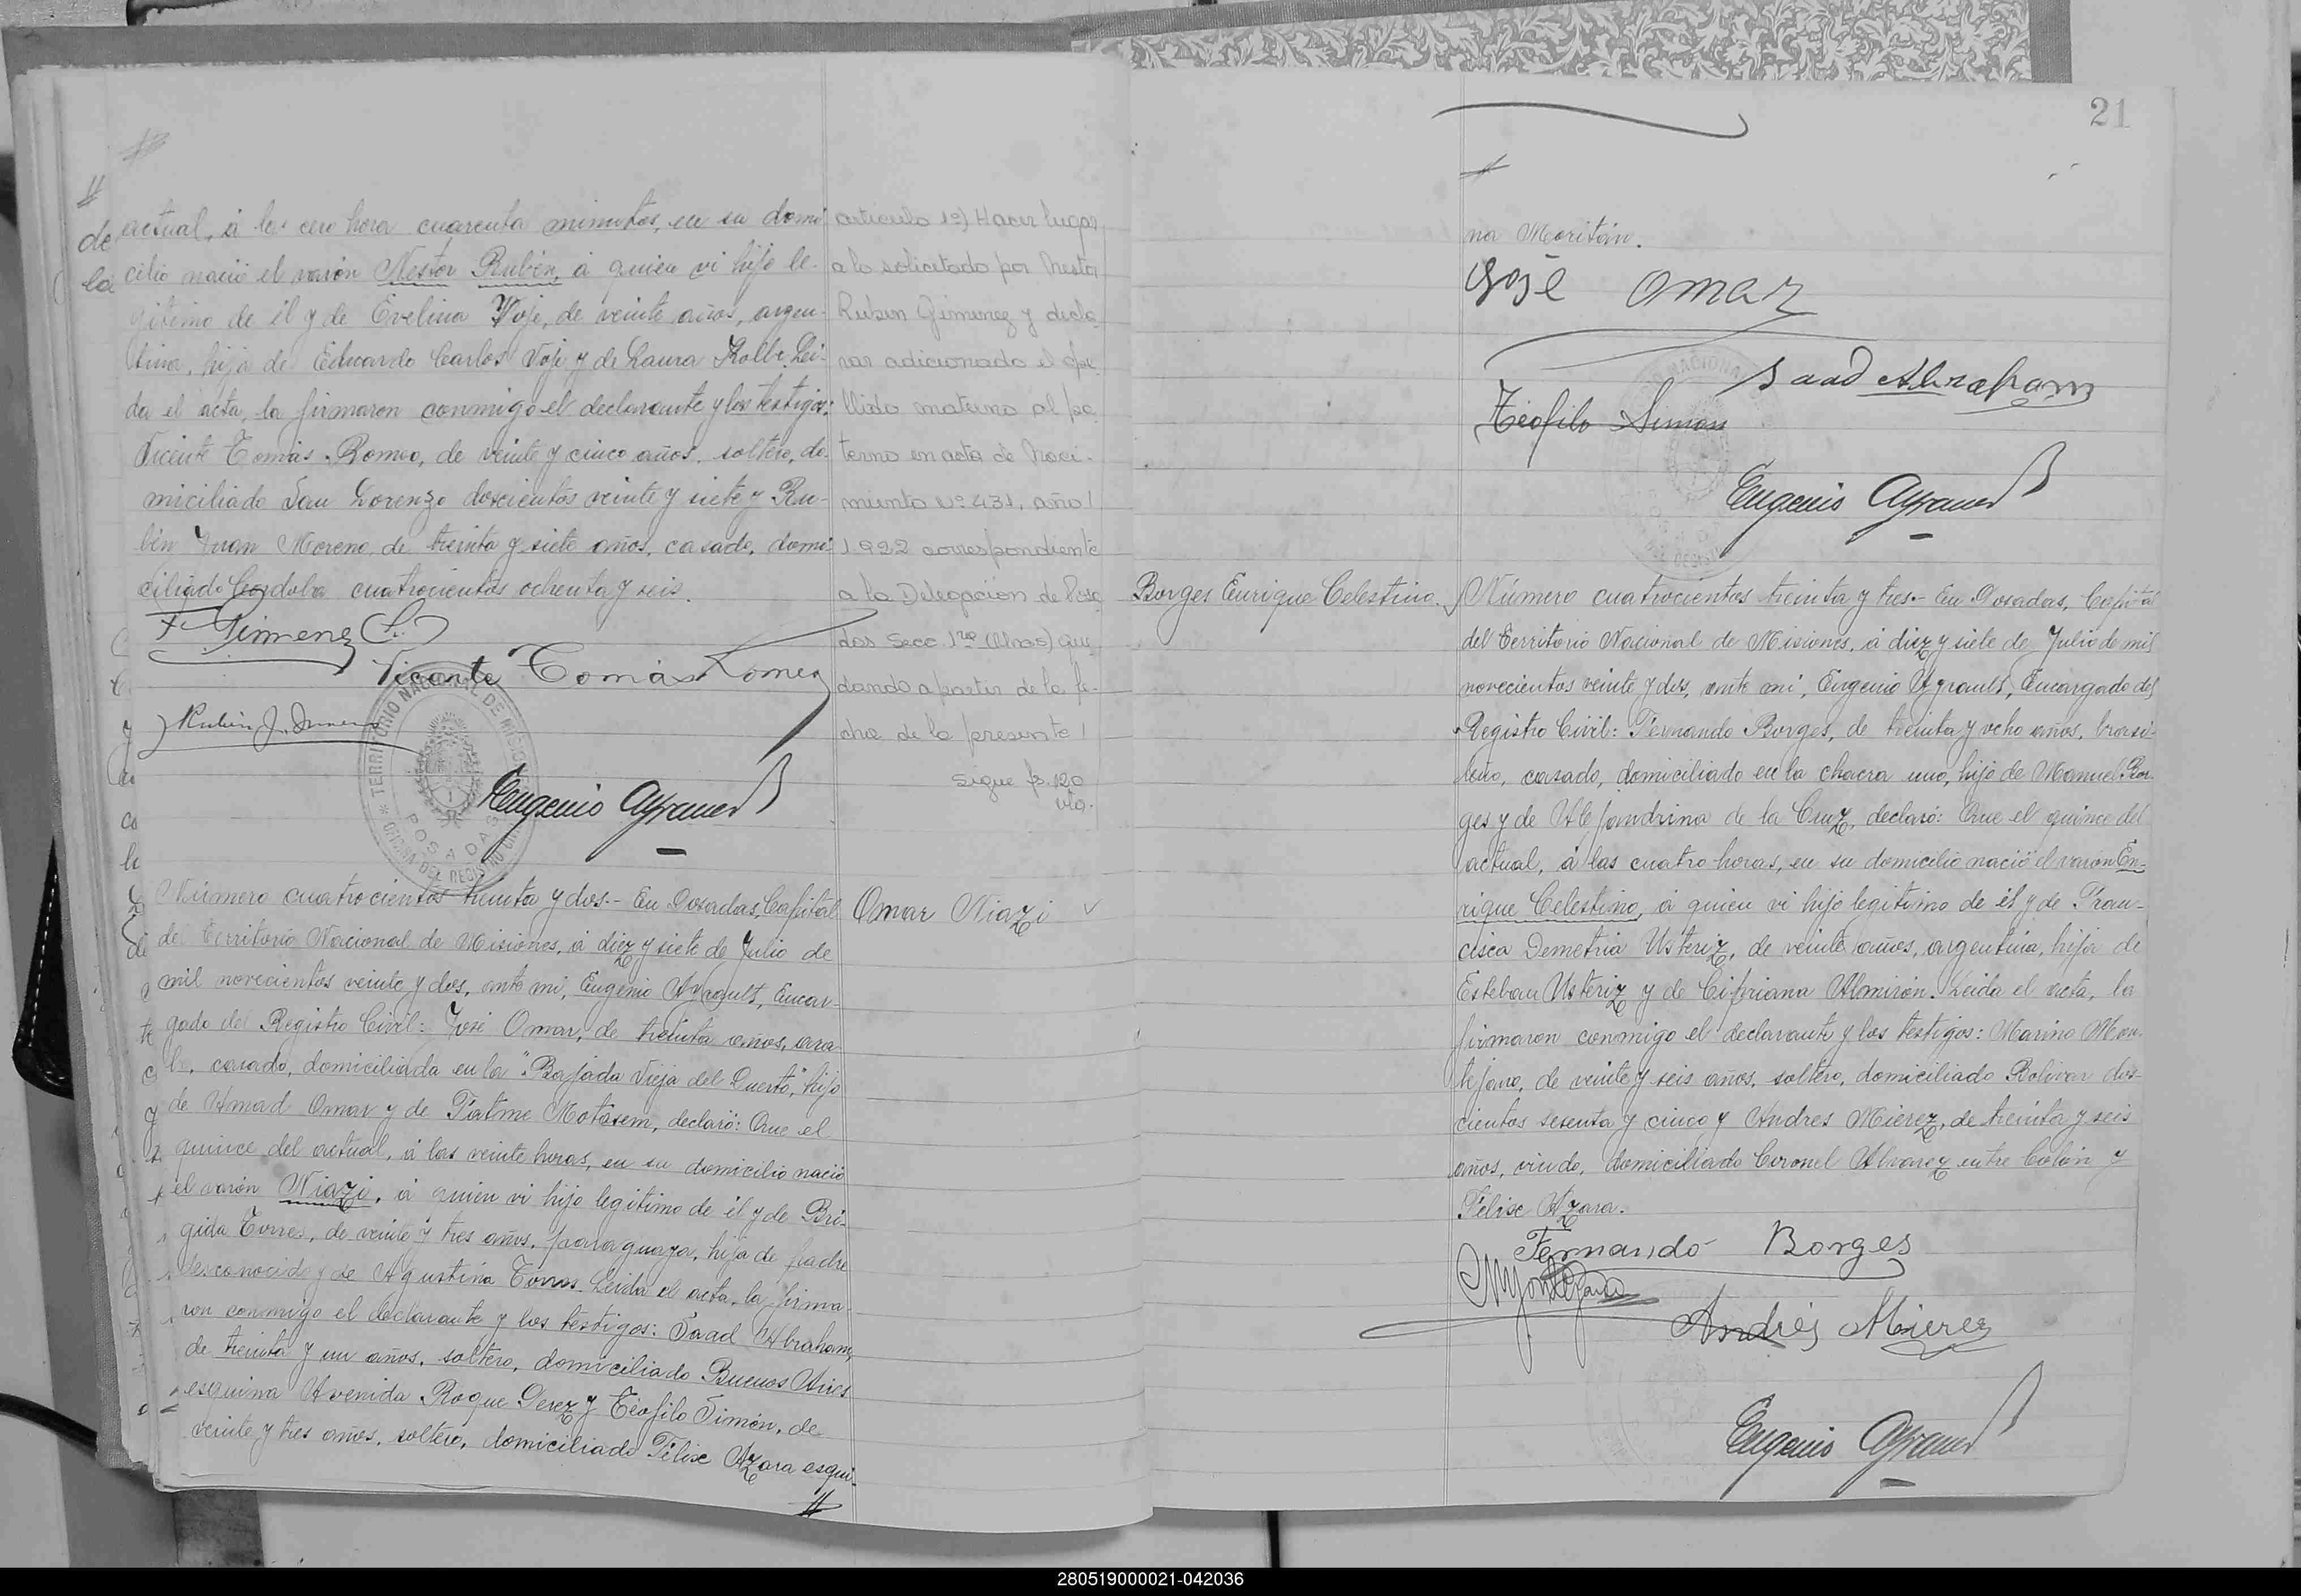 actual, á las cero hora cuarenta minutos, en su domi
cilio nació el varón Nestor Rubén, á quien vi hijo le-
gitimo de él y de Evelina Voje, de veinte años, argen-
tina, hija de Eduardo Carlos Voje y de Laura Kolbe. Lei-
da el acta, la firmaron conmigo el declarante y los testigos:
Vicente Tomás Romeo, de veinte y cinco años, soltero, do-
miciliado San Lorenzo doscientos veinte y siete y Ru-
bén Juan Moreno, de treinta y siete años, casado, domi-
ciliado Cordoba cuatrocientos ochenta y seis.
F. Gimenez
Vicente Tomás Romeo
Rubén J. Moreno
TERRITORIO NACIONAL DE MISIONES
OFICINA DEL REGISTRO CIVIL
POSADAS
Eugenio Ayrault
articulo 1º) Hacer lugar
a lo solicitado por Nestor
Ruben Gimenez y decla-
rar adicionado el ape-
llido materno al pa-
terno en acta de Naci-
miento Nº 431, año
1922 correspondiente
a la Delegación de Posa
das Secc. 1ra que-
dando a partir de la fe-
cha de la presente
sigue fs. 120
vto.
Número cuatrocientos treinta y dos.- En Posadas, Capital
del Territorio Nacional de Misiones, á diez y siete de Julio de
mil novecientos veinte y dos, ante mi, Eugenio Ayrault, Encar-
gado del Registro Civil: José Omar, de treinta años, ara-
be, casado, domiciliado en la "Bajada Vieja del Puerto," hijo
de Amad Omar y de Fatme Motasem, declaró: Que el
quince del actual, á las veinte horas, en su domicilio nació
el varón Niazi, á quien vi hijo legitimo de él y de Bri-
gida Torres, de veinte y tres años, paraguaya, hija de padre
desconocido y de Agustina Torres. Leida el acta, la firma-
ron conmigo el declarante y los testigos: Saad Abraham,
de treinta y un años, soltero, domiciliado Buenos Aires
esquina Avenida Roque Perez y Teófilo Simón, de
veinte y tres años, soltero, domiciliado Félix Azara esqui-
Omar Niazi
21
na Moritán.
José Omar
Saad Abraham
Teofilo Simon
Eugenio Ayrault
Borges Enrique Celestino.
Número cuatrocientos treinta y tres.- En Posadas, Capital
del Territorio Nacional de Misiones, á diez y siete de Julio de mil
novecientos veinte y dos, ante mi, Eugenio Ayrault, Encargado del
Registro Civil: Fernando Borges, de treinta y ocho años, brasi-
leño, casado, domiciliado en la chacra uno, hijo de Manuel Bor-
ges y de Alejandrina de la Cruz, declaró: Que el quince del
actual, á las cuatro horas, en su domicilio nació el varón En-
rique Celestino, á quien vi hijo legitimo de él y de Fran-
cisca Demetria Usteriz, de veinte años, argentina, hija de
Esteban Usteriz y de Cipriana Almirón. Leida el acta, la
firmaron conmigo el declarante y los testigos: Marino Mon-
tejano, de veinte y seis años, soltero, domiciliado Bolivar dos-
cientos sesenta y cinco y Andres Mierez, de treinta y seis
años, viudo, domiciliado Coronel Alvarez entre Colón y
Félix Azara.
Fernando Borges
Andrés Mierez
Eugenio Ayrault
280519000021-042036